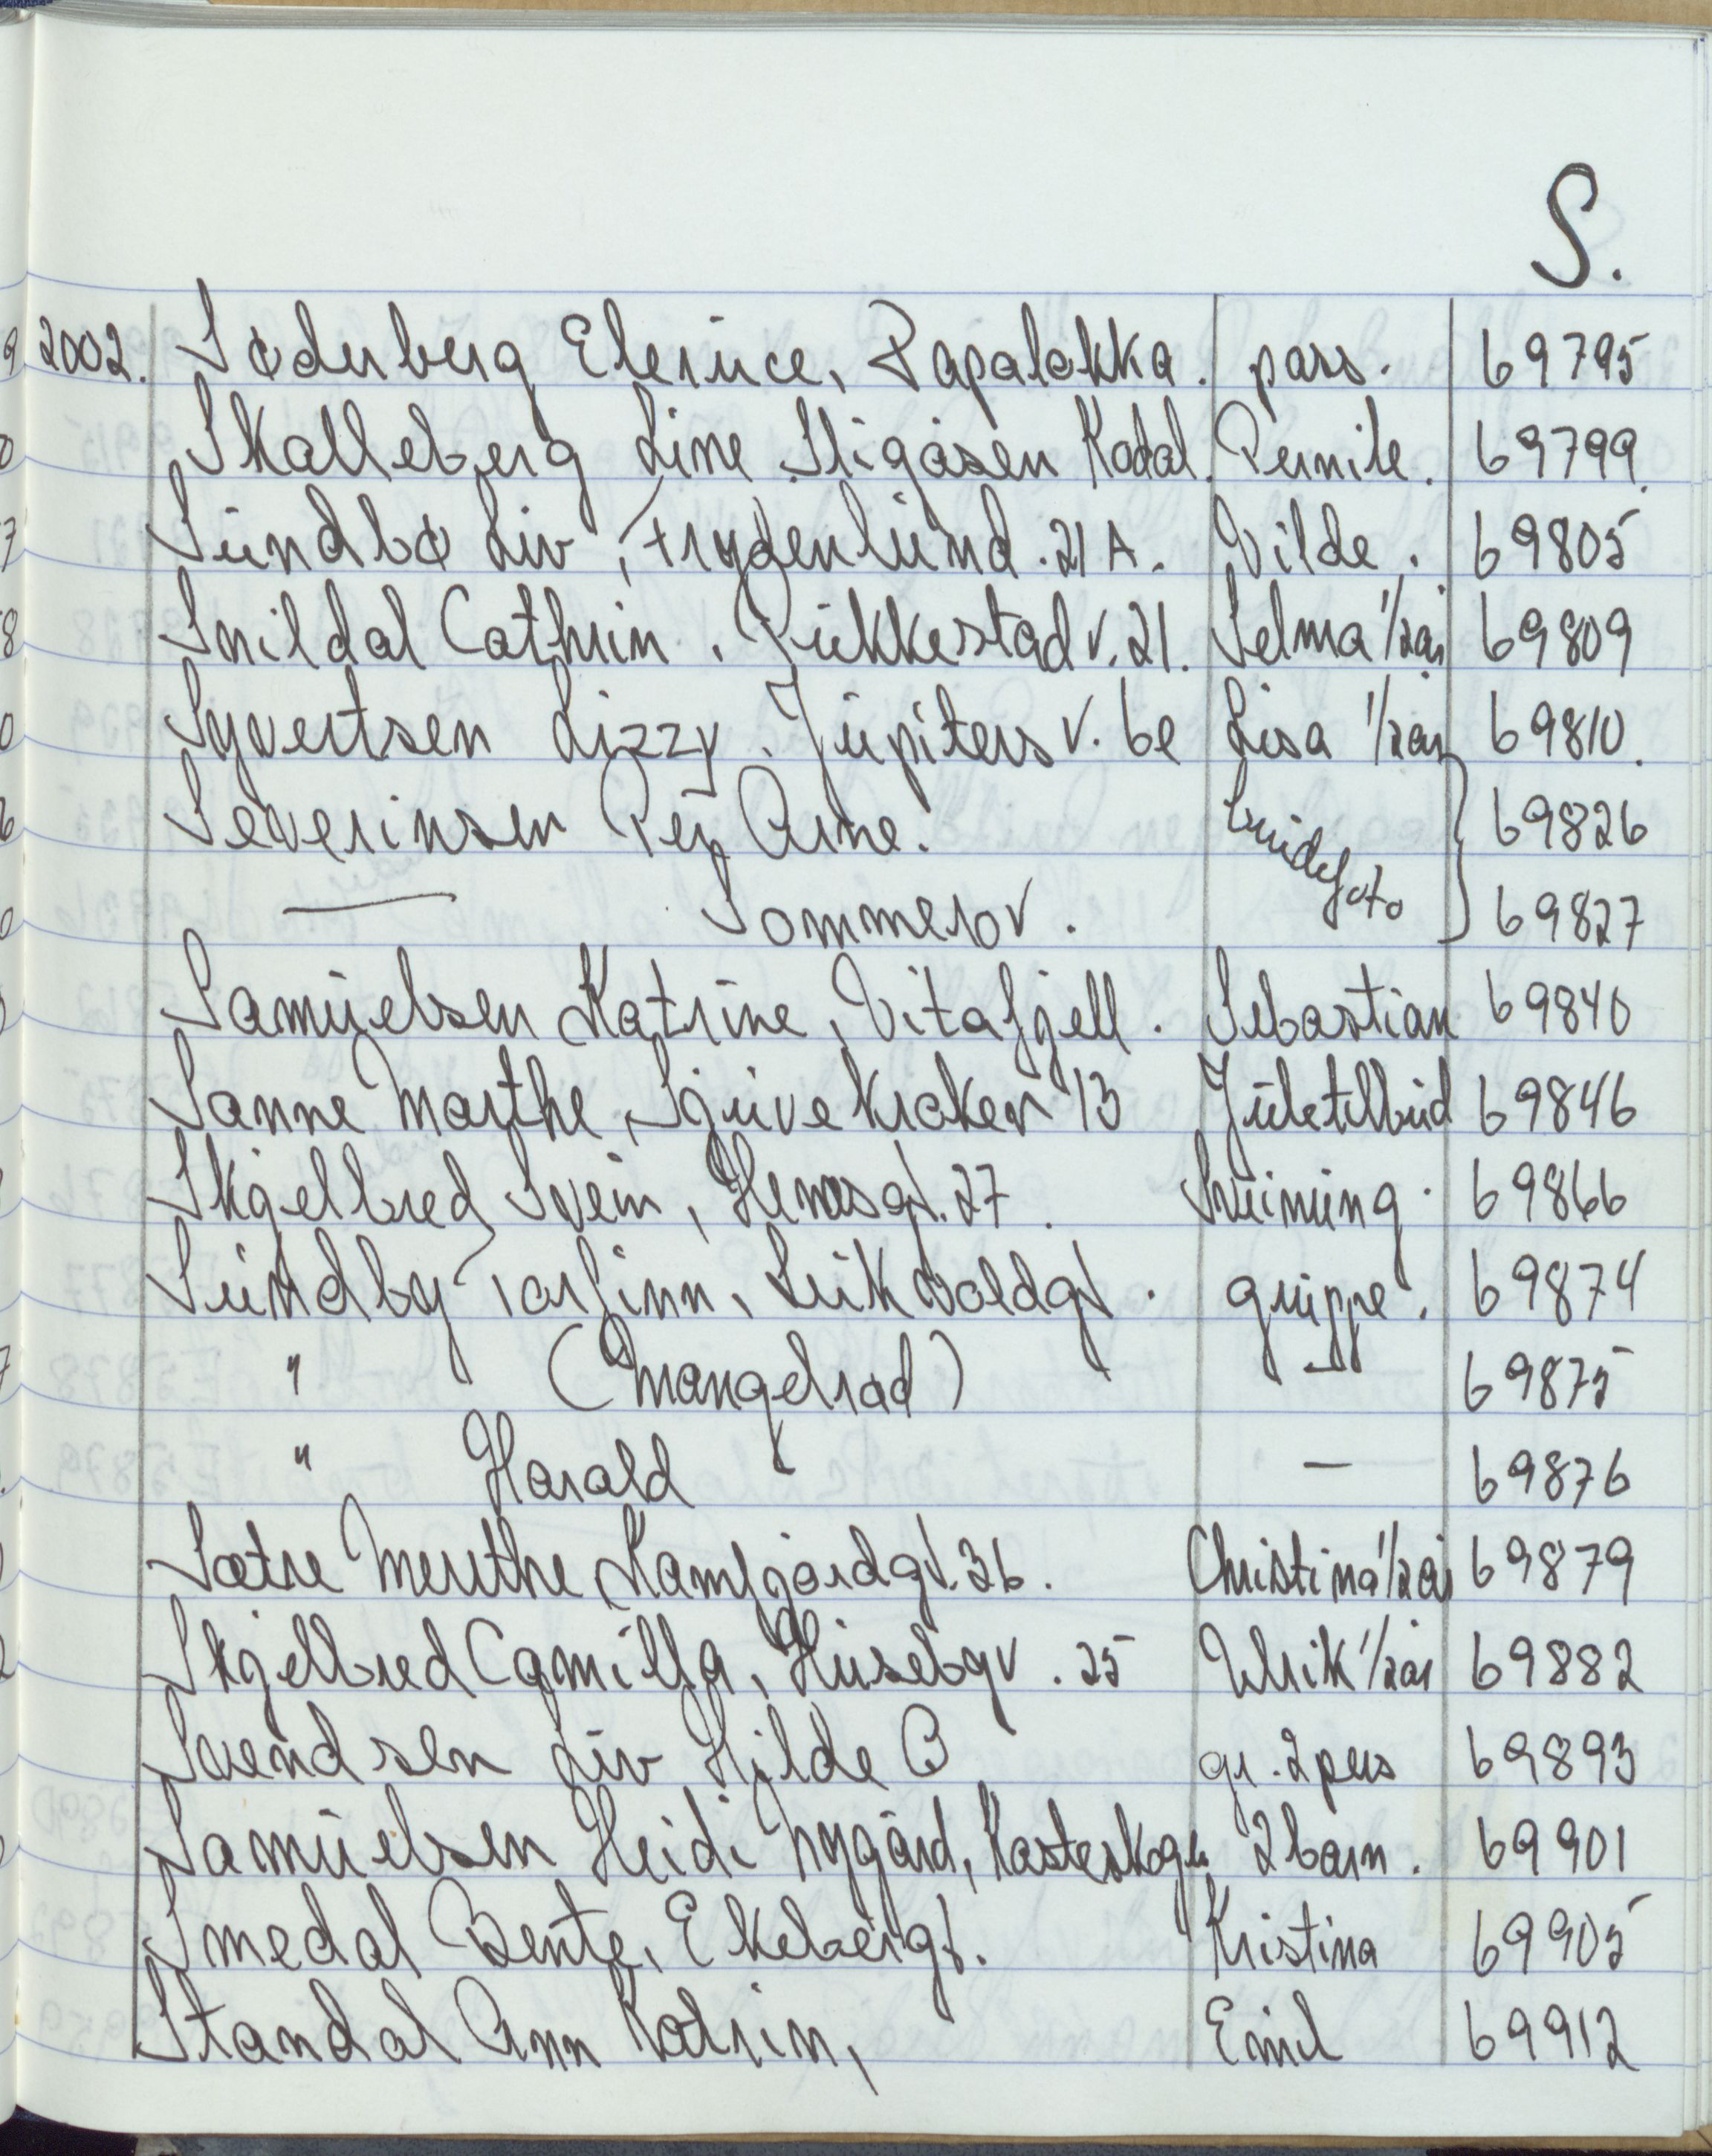 S.
2002. Søderberg Eleruce, Papaløkka. pass. 69795
Skalleberg Line Stigåsen Kodal. Pernile. 69799.
Sundbø Liv, Frydenlund. 21A. Vilde. 69805
Snildal Cathrin. Pukkestad v. 21. Selma 1/2år 69809
Syvertsen Lizzy. Jupiters v. 6e Lisa 1/2år 69810.
Severinsen Per Arne. brudefoto 69826
— Sommerov. 69827
Samuelsen Katrine, Vitafjell. Sebastian 69840
Sanne Marthe, Sjuvekroken 13 Juletilbud 69846
Skjelbred Svein, gt. 27. 69866
Sundby Torfinn, gt. gruppe. 69874
" (Mangelrød) — 69875
" Harald — 69876
Sætre Merethe Kamfjordgt. 36. Christina 1/2år 69879
Skjelbred Camilla, Husebyv. 25 Ulrik 1/2år 69882
Svendsen Liv Hilde B gr. 2 pers 69893
Samuelsen Heidi Nygård, 2 barn. 69901
Smedal Bente, Ekebergt. Kristina 69905
Standal Ann Katrin, Emil 69912